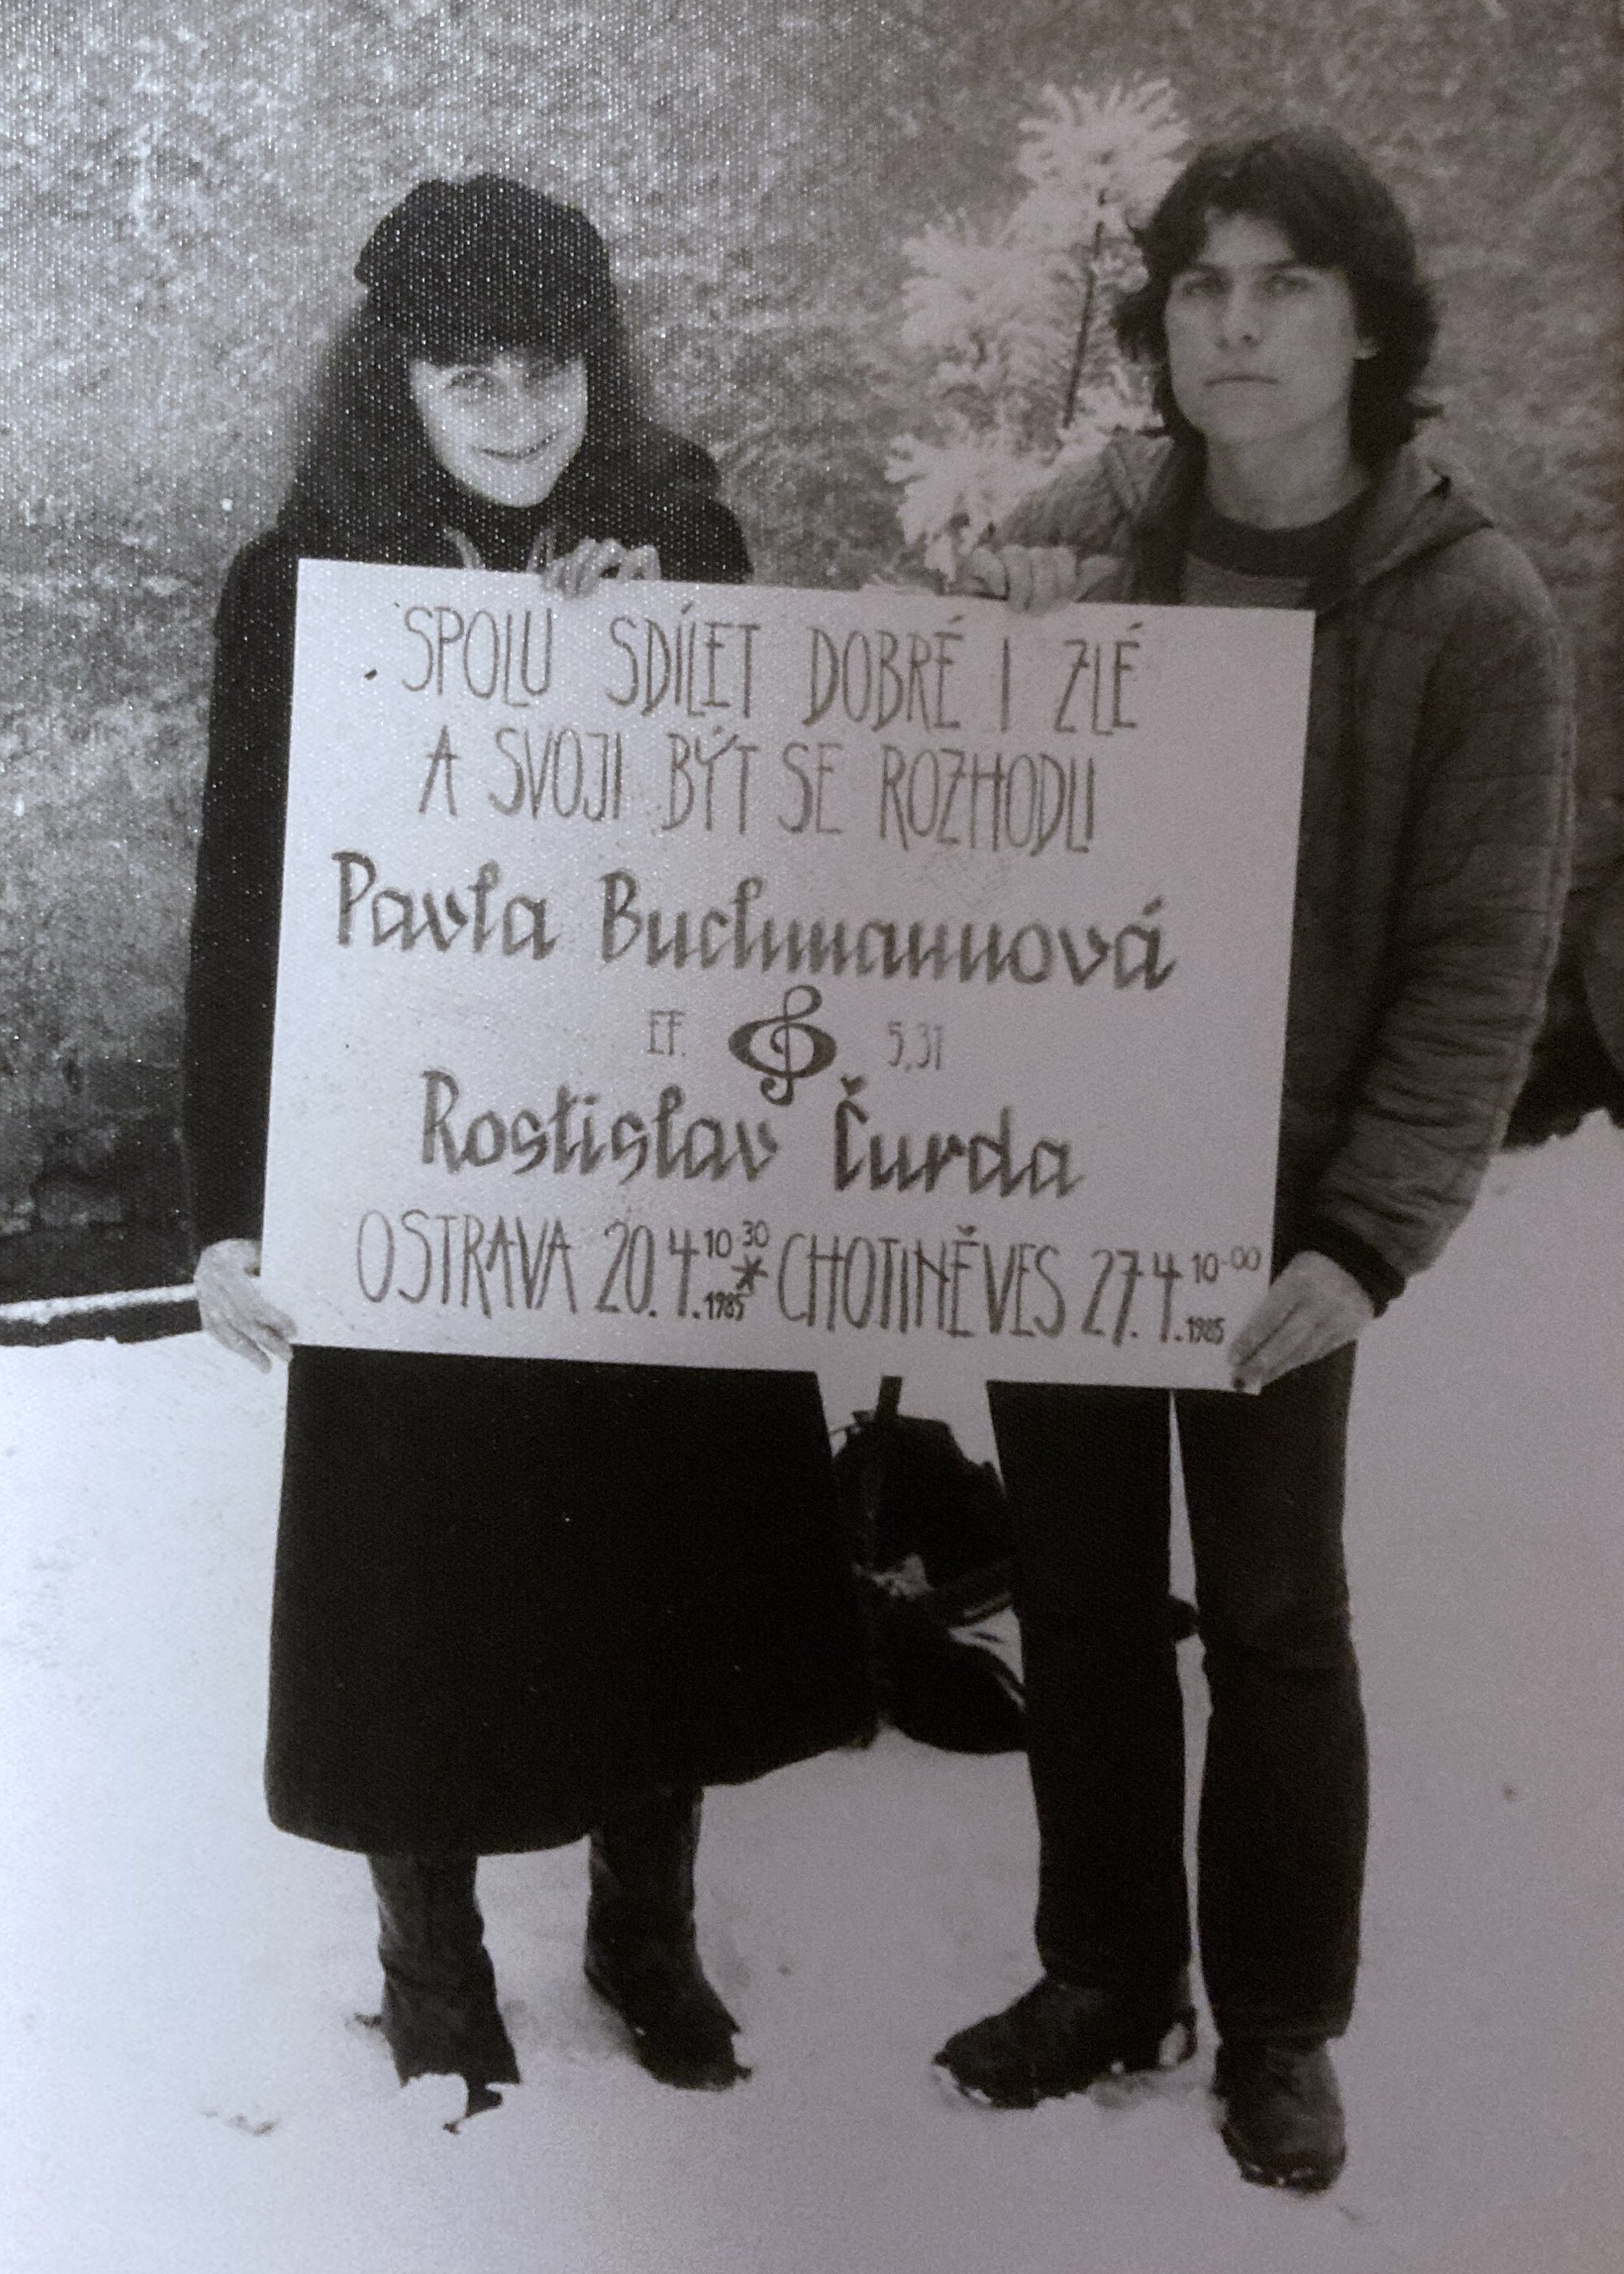 SPOLU SDÍLET DOBRÉ I ZLÉ
A SVOJI BÝT SE ROZHODLI
Pavla Buchmannová
EF. 5,31
Rostislav Čurda
OSTRAVA 20.4.1985 10 30 * CHOTINĚVES 27.4.1985 10-00